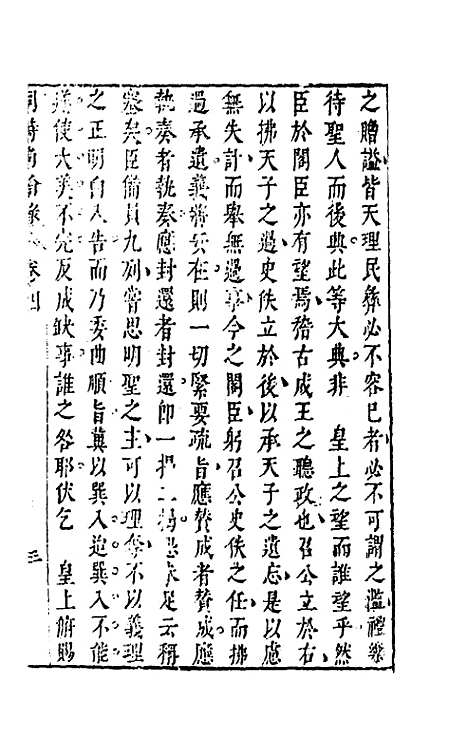 之贈謚皆天理民彝必不容已者必不可謂之濫禮樂
待聖人而後典此等大典非　皇上之望而誰望乎然
臣於閣臣亦有望焉稽古成王之聽政也召公立於右
以拂天子之過史佚立於後以承天子之遺忘是以慮
無失計而舉無過事今之閣臣躬召公史佚之任而拂
過承遺義將安在則一切緊要疏旨應贊成者贊成應
執奏者執奏應封還者封還即一揭二揭思亦足云稱
塞矣臣備員九列嘗思明聖之主可以理奪不以義理
之正明白入告而乃委曲順旨冀以巽入迨巽入不能
遂使大美不完反成缺事誰之咎耶伏乞　皇上俯賜
同時尚論錄　卷四　三